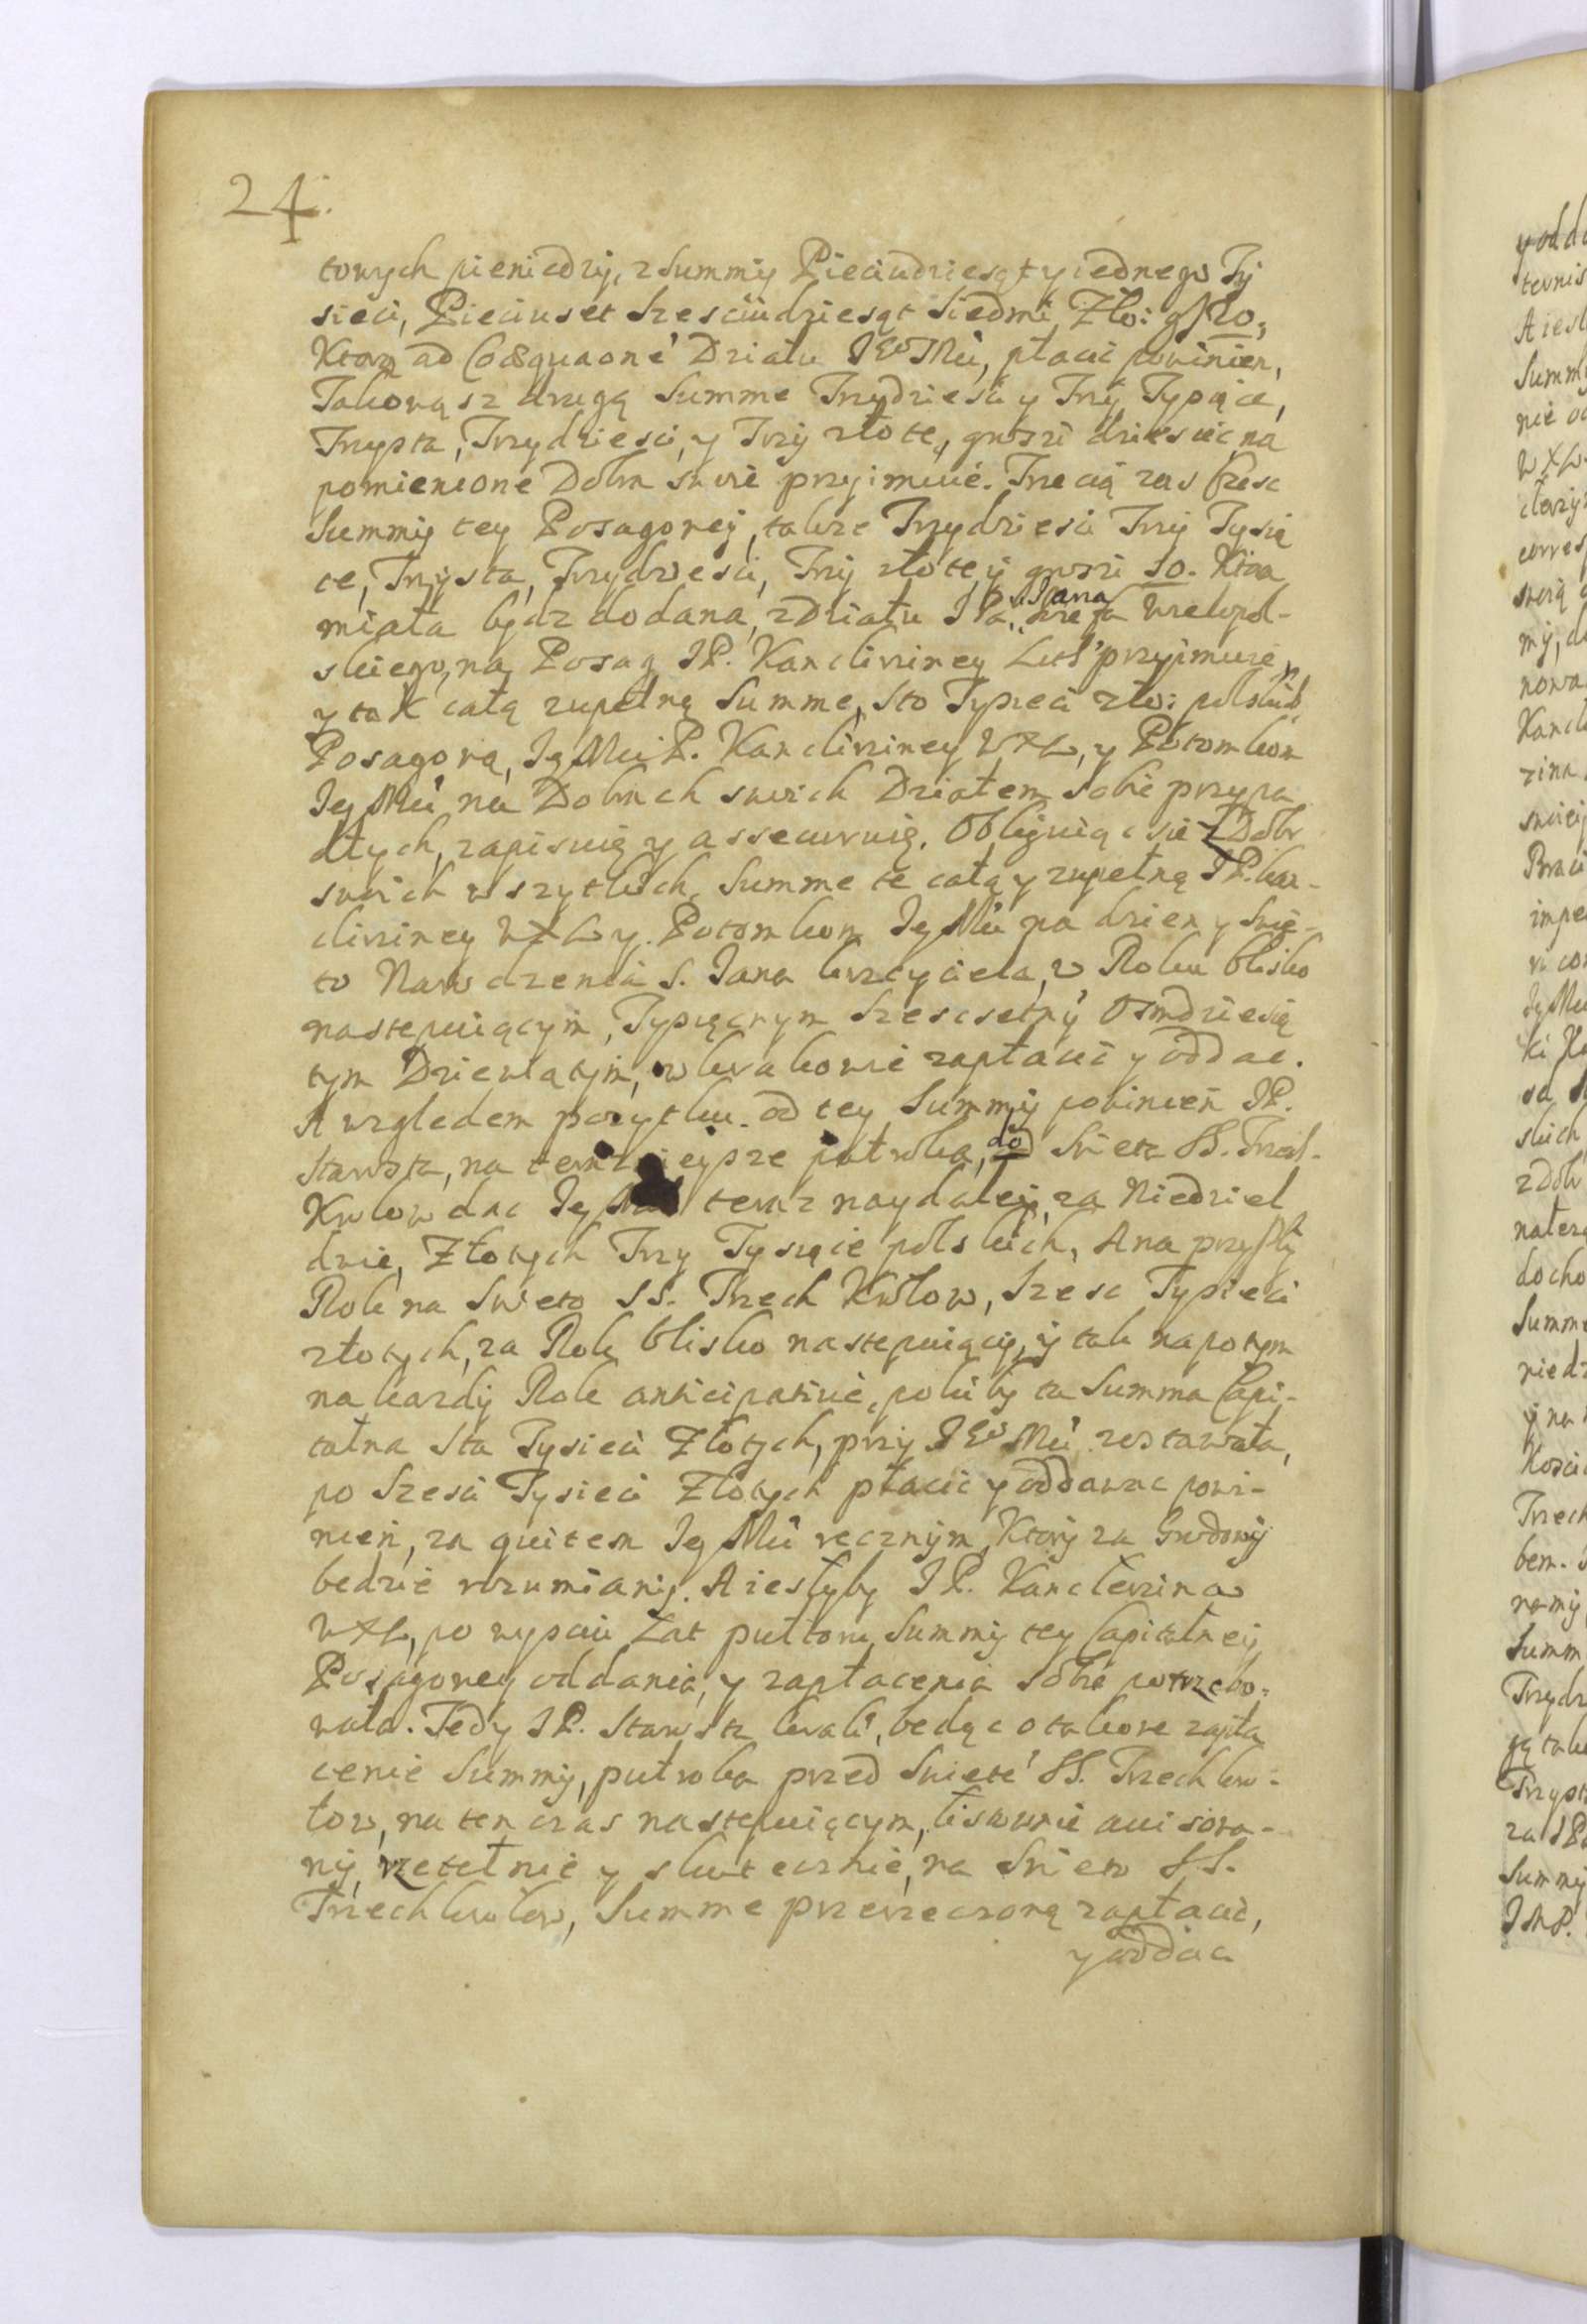 24.
towych pieniedzÿ, z Summÿ Pieciudziesąt y iednego Tÿ
sieci, Pieciuset Szesciudziesąt Siedmi Zło: g 20,
Ktorą ad Coæquaone Działu IEo Mci, płacic powinien,
Takową sz drugą Summe Trzydziesci y Trzÿ Tysiące,
Trzysta, Trzydziesci, y Trzÿ złote, groszi dziesiec, na
pomienione Dobra swoie przyimuie. Trzecią zas Czesc
Summÿ tey Posagowej, także Trzydziesci Trzÿ Tysią
ce, Trzÿsta, Trzydziesci, Trzÿ złotey groszi 10. Ktora
miała bÿdz dodana, z Działu IPa Jana Wielopol-
skiego, na Posag IP. Kanclirziney Lit: przyimuie,
y tak całą zupełną Summe, Sto Tysieci zło: polskich
Posagową, Ieÿ Mci P. Kanclirziney WXL, y Potomkom
Ieÿ Mci na Dobrach swoich Działem Sobie przypa
dłych, zapisuią y assecuruią. Obliguiąc sie z Dobr
swoich wszytkich, Summe te całą y zupełną IP. Kan-
clirziney WXL y Potomkom Ieÿ Mci na dzien y Swię-
to Narodzenia S. Jana krzcyciela, w Roku blisko
nastepuiącÿm, Tysiącnym Szescsetnÿ Osmdziesią
tym Dziewiątÿm, w Krakowie zapłacic y oddac.
A wzgledem pozytku od tey Summÿ powinien IP.
Starosta, na teraznieysze pułroka, do Swieta SS. Trzech-
Krolow dac Ieÿ Mci teraz naydaleÿ, za Niedziel
dwie, Złotych Trzy Tysiące polskich, A na przyszłÿ
Rok na Swieto SS. Trzech Krolow, Szesc Tysieci
złotych, za Rok blisko nastepuiącÿ, ÿ tak napotym
na każdÿ Rok anticipative, pokibÿ ta Summa Capi-
talna Sta Tysieci Złotych, przÿ IEo Mci zostawała,
po Szesci Tysieci Złotych płacic y oddawac powi-
nien, za quitem Ieÿ Mci recznÿm, Ktorÿ za Grodowÿ
bedzie rozumianÿ. A iesłyby IP. Kanclerzina
WXL, po wysciu Lat pułtora, Summÿ tey Capitalneÿ
Posagowey oddania, y zapłacenia Sobie potrzebo-
wała. Tedy IP. Starosta krak, bedąc o takowe zapła
cenie Summÿ, pułroka przed Swiete SS. Trzech kro-
low, na ten czas nastepuiącym, listownie avisowa-
nÿ, rzetelnie y skutecznie, na Swieto SS.
Trzech krolow, Summe przerzeczoną zapłacic,
y oddac